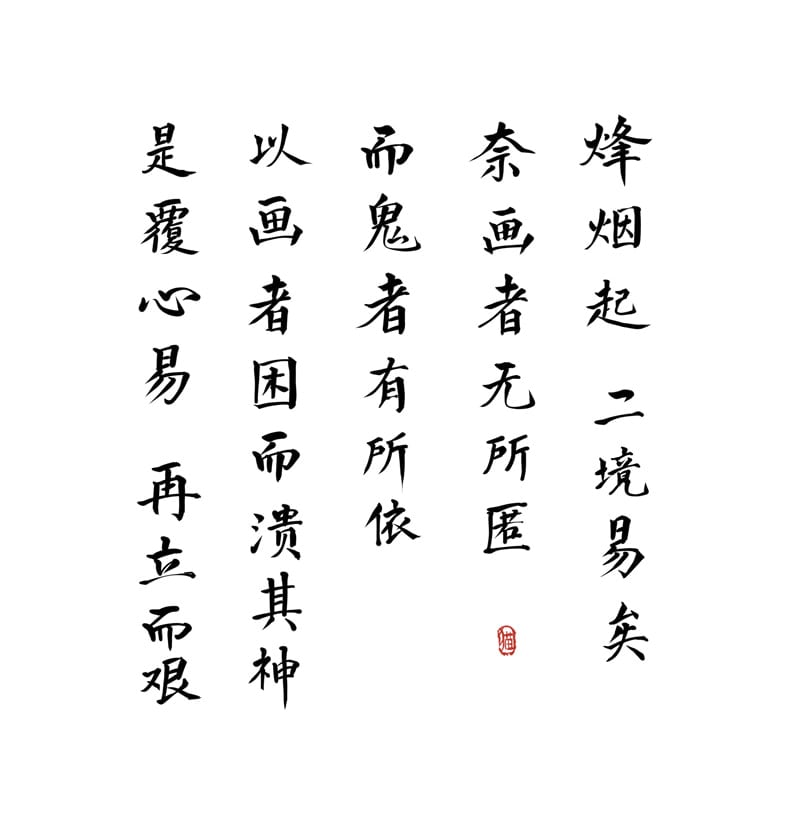 烽烟起 二境易矣
奈画者无所匿
猫
而鬼者有所依
以画者困而溃其神
是覆心易 再立而艰